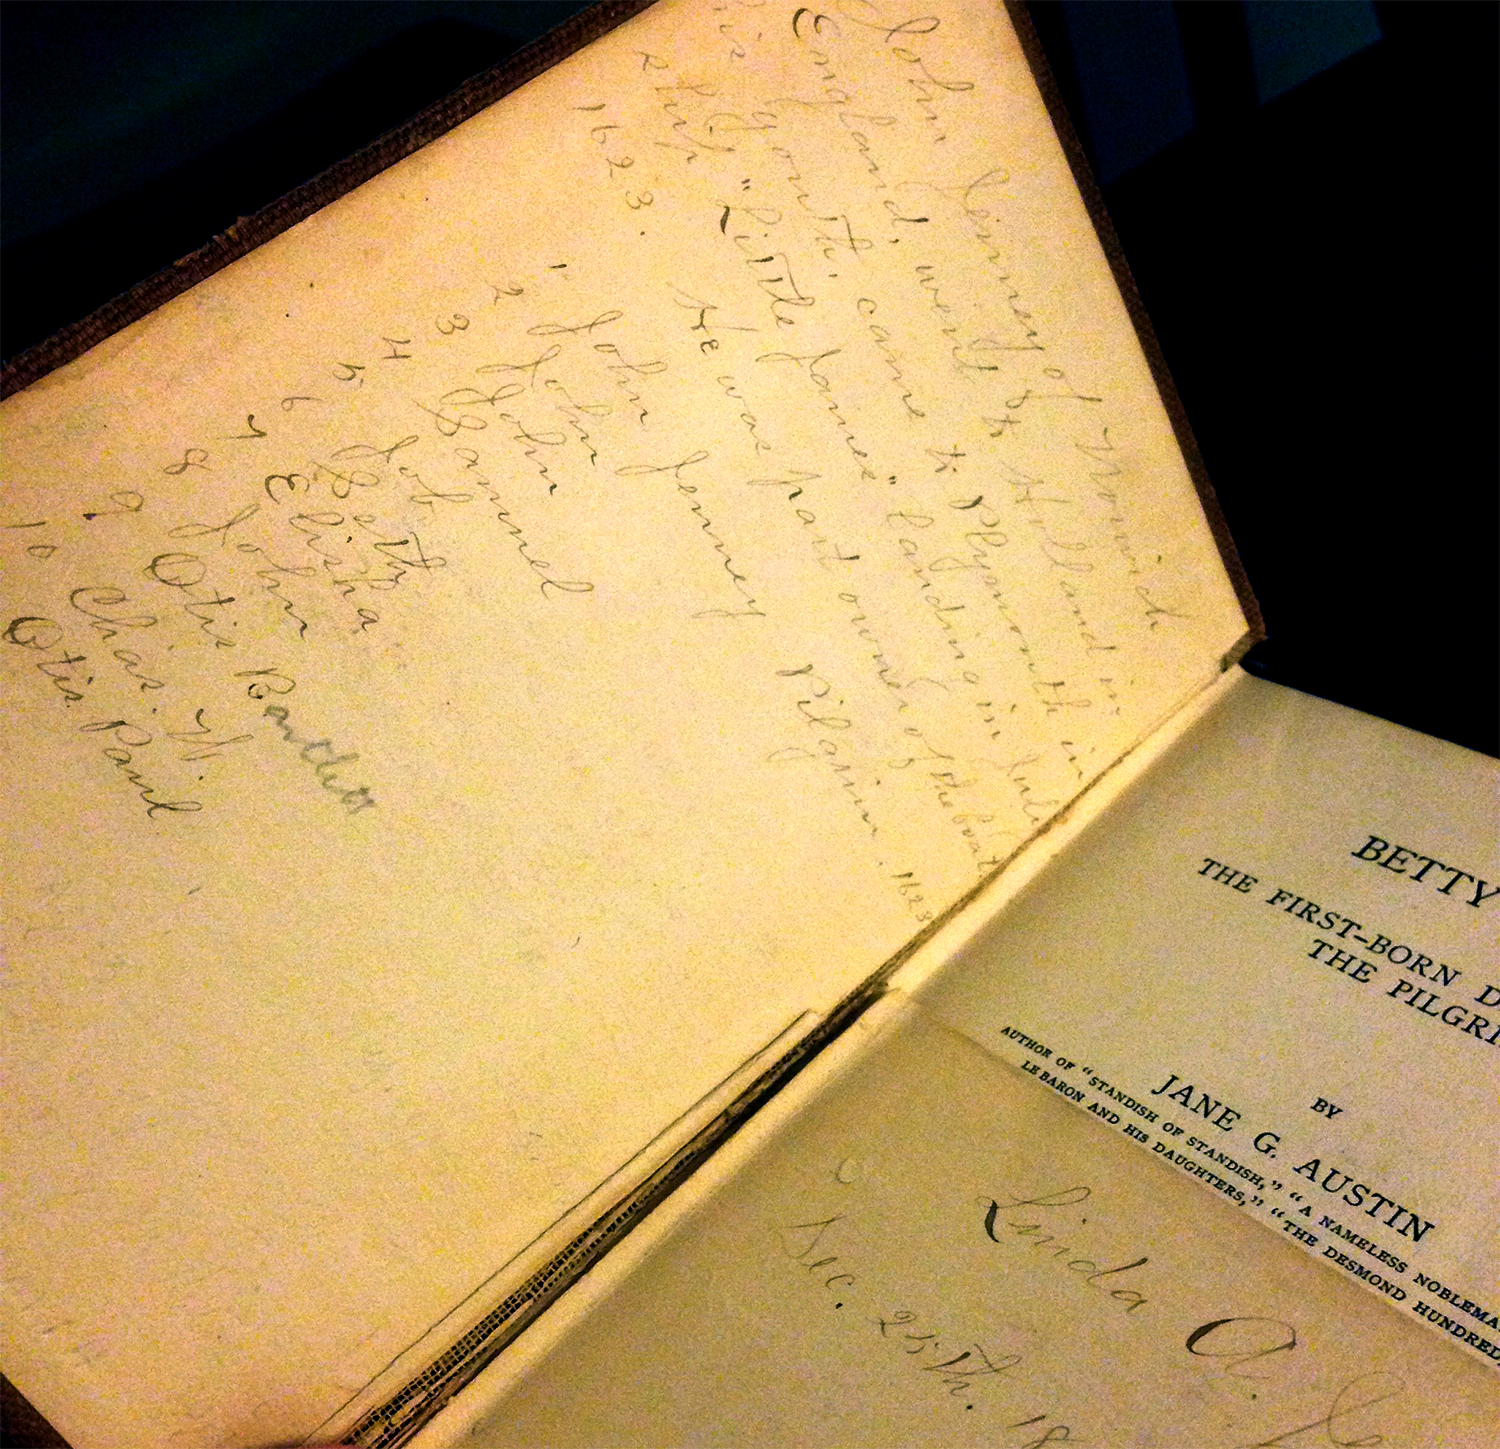 John Jenney of Norwich
England, went to Holland in
his youth, came to Plymouth in
ship "Little James" landing in July
1623. He was part owner of the boat
1 John Jenney Pilgrim. 1623
2 John
3 John
4 Samuel
5 Job
6 Seth
7 Elisha
8 John
9 Otis
10 Chas. W.
Otis Paul
BETTY
THE FIRST-BORN D
THE PILGRI
BY
JANE G. AUSTIN
AUTHOR OF "STANDISH OF STANDISH," "A NAMELESS NOBLEMA
LE BARON AND HIS DAUGHTERS," "THE DESMOND HUNDRED,
Linda A. Je
Dec. 25th. 18